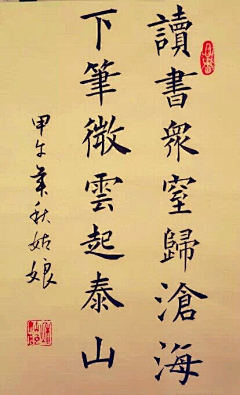 讀書衆窒歸滄海
下筆微雲起泰山
甲午秋姑娘